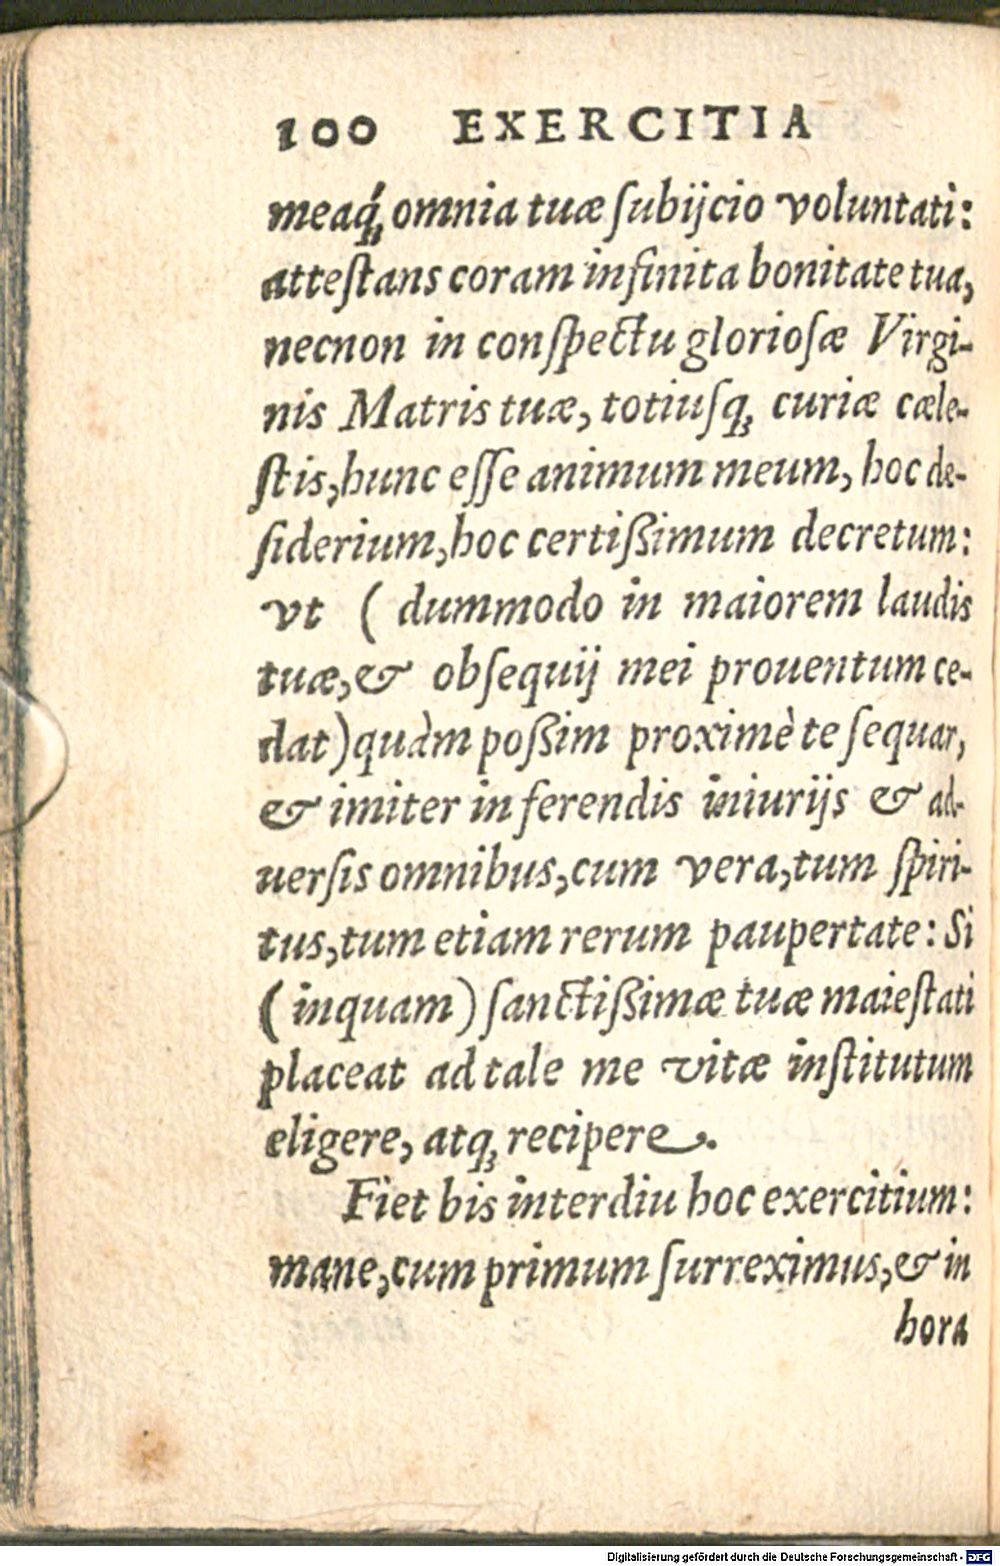 100 EXERCITIA
meaq́ꝫ omnia tuæ ſubijcio voluntati:
atteſtans coram infinita bonitate tua,
necnon in conſpectu glorioſæ Virgi-
nis Matris tuæ, totiuſqꝫ curiæ cæle-
ſtis, hunc eſſe animum meum, hoc de-
ſiderium, hoc certißimum decretum:
vt ( dummodo in maiorem laudis
tuæ, & obſequij mei prouentum ce-
dat) quàm poßim proximè te ſequar,
& imiter in ferendis iniurijs & ad-
uerſis omnibus, cum vera, tum ſpiri-
tus, tum etiam rerum paupertate: Si
( inquam ) ſanctißimæ tuæ maieſtati
placeat ad tale me vitæ inſtitutum
eligere, atqꝫ recipere.
Fiet bis interdiu hoc exercitium:
mane, cum primum ſurreximus, & in
hora
Digitalisierung gefördert durch die Deutsche Forschungsgemeinschaft - DFG